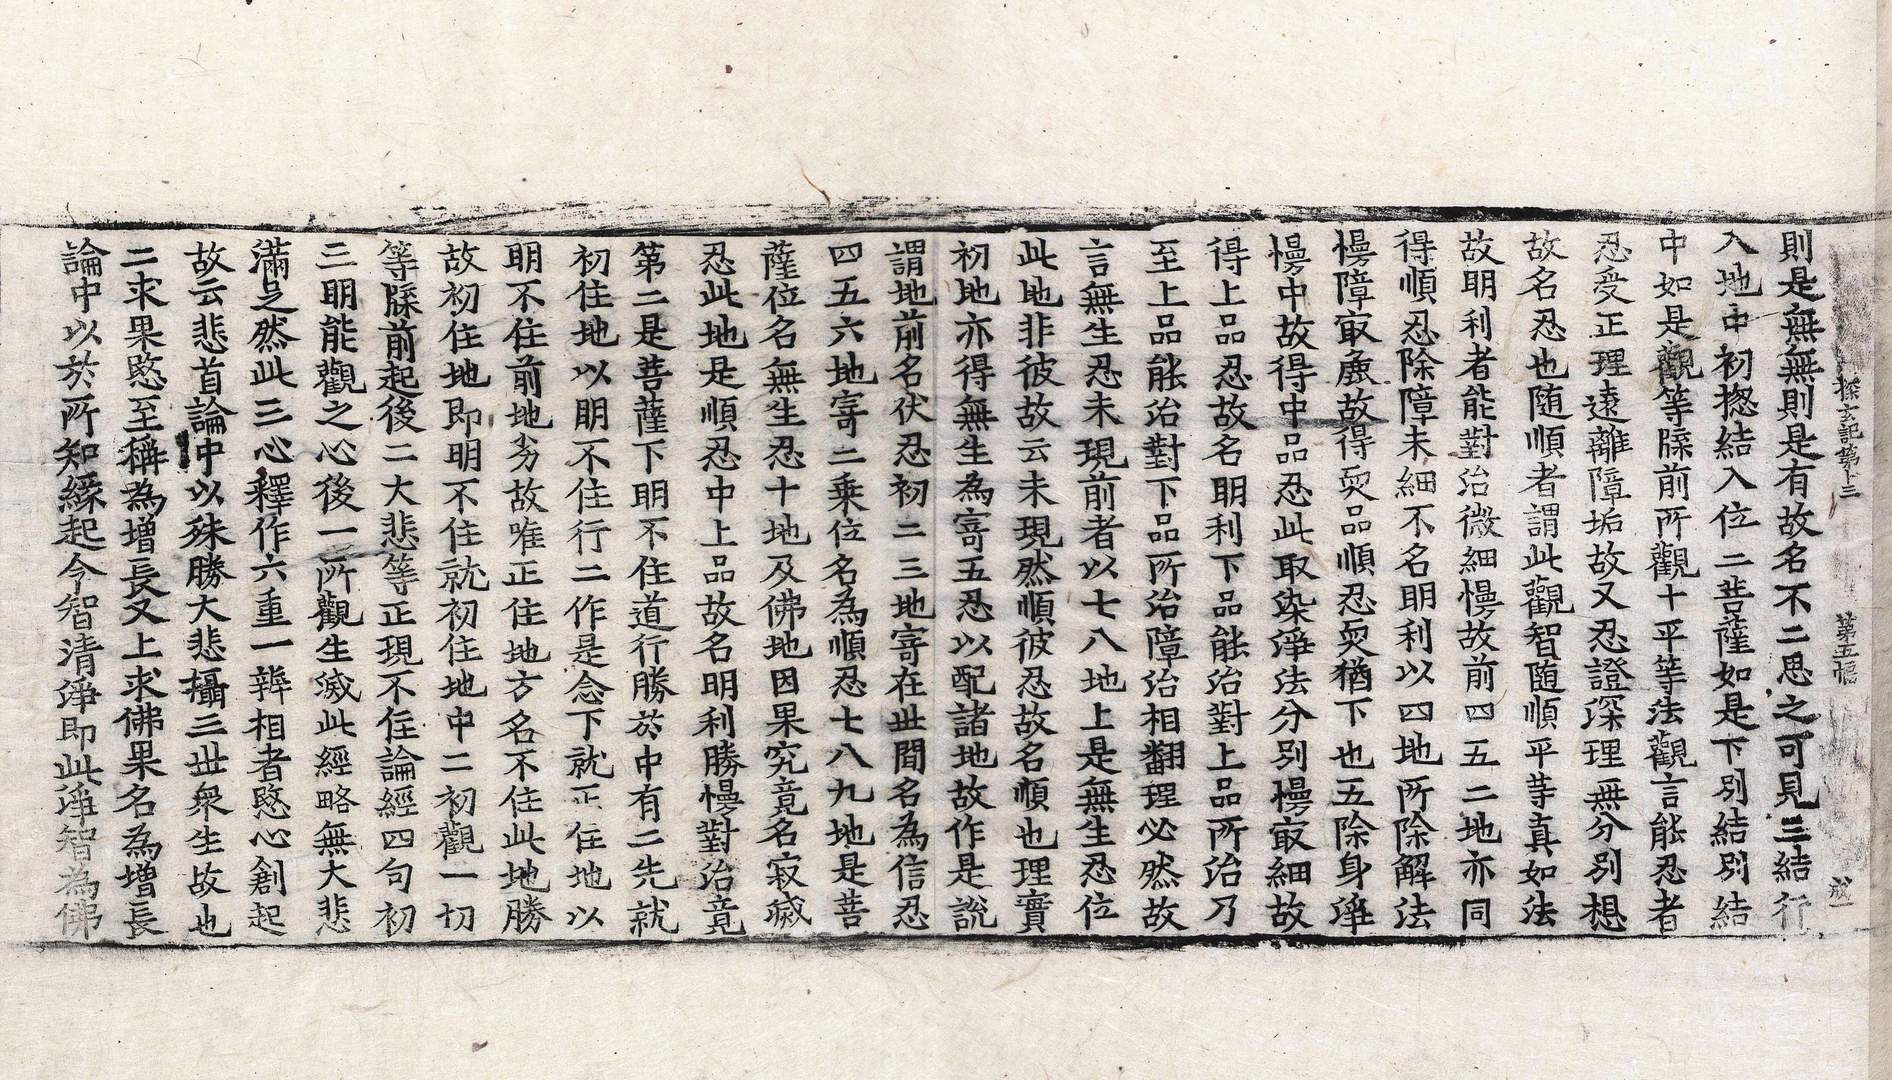 探玄記第十三 第五幅
則是無無則是有故名不二思之可見三結行
入地中初揔結入位二菩薩如是下別結別結
中如是觀等牒前所觀十平等法觀言能忍者
忍受正理遠離障垢故又忍證深理無分別想
故名忍也随順者謂此觀智随順平等真如法
故明利者能對治微細慢故前四五二地亦同
得順忍除障未細不名明利以四地所除解法
慢障㝡麁故得耎品順忍耎猶下也五除身淨
慢中故得中品忍此取染淨法分別慢㝡細故
得上品忍故名明利下品能治對上品所治乃
至上品能治對下品所治障治相翻理必然故
言無生忍未現前者以七八地上是無生忍位
此地非彼故云未現然順彼忍故名順也理實
初地亦得無生為寄五忍以配諸地故作是說
謂地前名伏忍初二三地寄在丗間名為信忍
四五六地寄二乗位名為順忍七八九地是菩
薩位名無生忍十地及佛地因果究竟名寂滅
忍此地是順忍中上品故名明利勝慢對治竟
第二是菩薩下明不住道行勝於中有二先就
初住地以明不住行二作是念下就正住地以
明不住前地劣故唯正住地方名不住此地勝
故初住地即明不住就初住地中二初觀一切
等牒前起後二大悲等正現不住論經四句初
三明能觀之心後一所觀生滅此經略無大悲
滿足然此三心釋作六重一辨相者愍心創起
故云悲首論中以殊勝大悲攝三丗衆生故也
二求果愍至稱為增長又上求佛果名為增長
論中以於所知縁起令智清淨即此淨智為佛